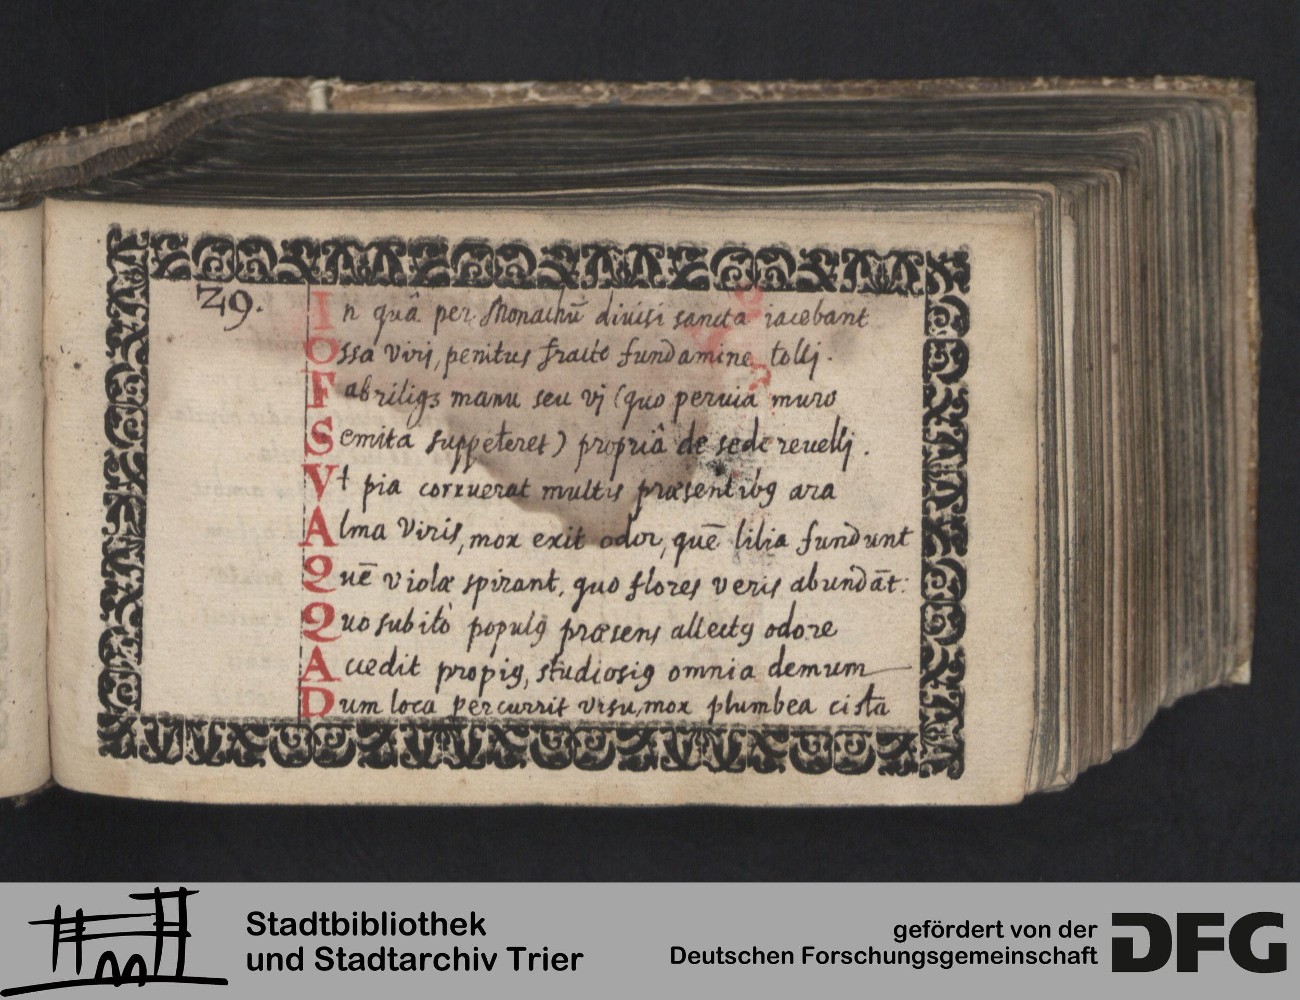 29.
In quâ per Monachũ diuisi sancta iacebant
Ossa virj, penitus fracto fundamine tollj.
Fabriliqȝ manu seu vj (quo peruia muro
Semita suppeteret) propriâ de sede reuellj.
Vt pia corruerat multis præsentibꝯ ara
Alma Viris, mox exit odor, quē lilia fundunt
Quē violæ spirant, quo flores veris abundāt:
Quo subitò populꝯ præsens allectꝯ odore
Accedit propiꝯ, studiosiꝯ omnia demum
Dum loca percurrit visu, mox plumbea cista
Stadtbibliothek
und Stadtarchiv Trier
gefördert von der
Deutschen Forschungsgemeinschaft
DFG